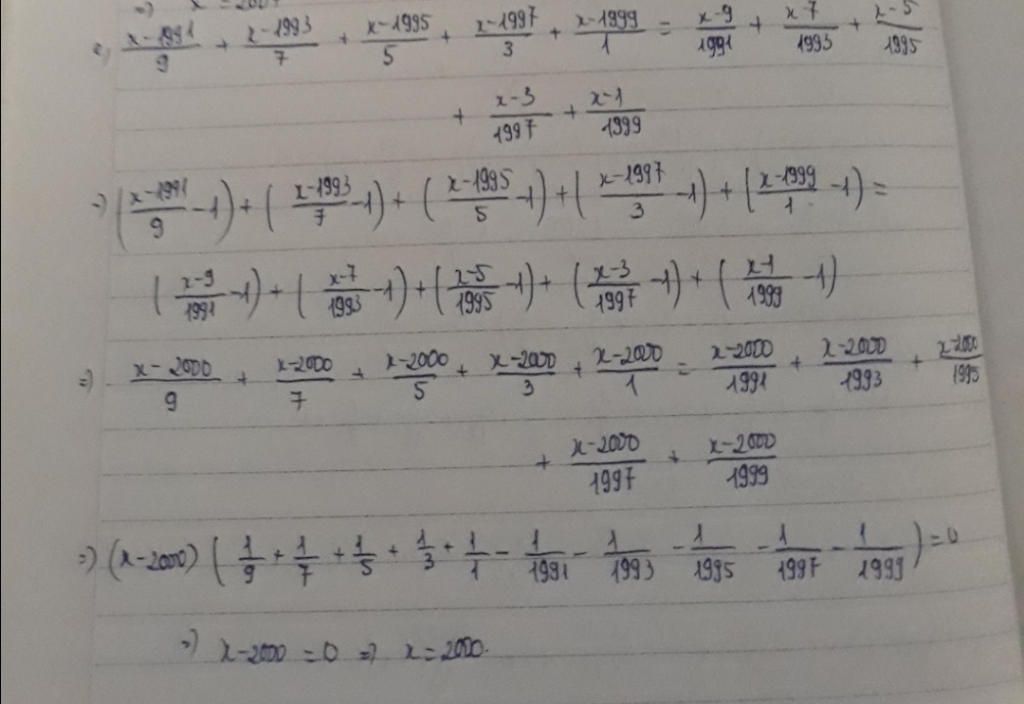 =) x = 200
e, x-1991/9 + x-1993/7 + x-1995/5 + x-1997/3 + x-1999/1 = x-9/1991 + x-7/1993 + x-5/1995
+ x-3/1997 + x-1/1999
=) (x-1991/9 -1) + (x-1993/7 -1) + (x-1995/5 -1) + (x-1997/3 -1) + (x-1999/1 -1) =
(x-9/1991 -1) + (x-7/1993 -1) + (x-5/1995 -1) + (x-3/1997 -1) + (x-1/1999 -1)
=) x-2000/9 + x-2000/7 + x-2000/5 + x-2000/3 + x-2000/1 = x-2000/1991 + x-2000/1993 + x-2000/1995
+ x-2000/1997 + x-2000/1999
=) (x-2000) (1/9 + 1/7 + 1/5 + 1/3 + 1/1 - 1/1991 - 1/1993 - 1/1995 - 1/1997 - 1/1999) = 0
=) x-2000 = 0 =) x = 2000.